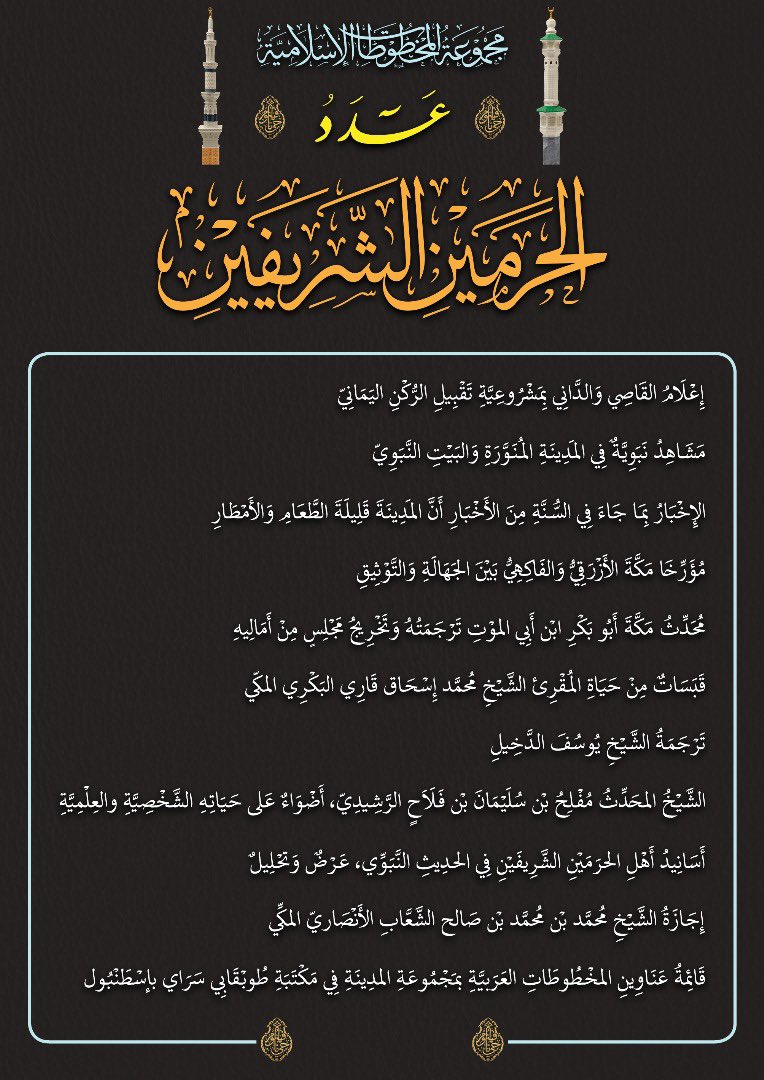 مَجْمُوعَةُ المَخْطُوطَاتِ الإِسْلَامِيَّة
عَدَدُ
الحَرَمَيْنِ الشَّرِيفَيْنِ
إِعْلَامُ القَاصِي وَالدَّانِي بِمَشْرُوعِيَّةِ تَقْبِيلِ الرُّكْنِ اليَمَانِيّ
مَشَاهِدُ نَبَوِيَّةٌ فِي المَدِينَةِ المُنَوَّرَةِ وَالبَيْتِ النَّبَوِيّ
الإِخْبَارُ بِمَا جَاءَ فِي السُّنَّةِ مِنَ الأَخْبَارِ أَنَّ المَدِينَةَ قَلِيلَةَ الطَّعَامِ وَالأَمْطَارِ
مُؤَرِّخَا مَكَّةَ الأَزْرَقِيُّ وَالفَاكِهِيُّ بَيْنَ الجَهَالَةِ وَالتَّوْثِيقِ
مُحَدِّثُ مَكَّةَ أَبُو بَكْرِ ابْن أَبِي المَوْتِ تَرْجَمَتُهُ وَتَخْرِيجُ مَجْلِسٍ مِنْ أَمَالِيهِ
قَبَسَاتٌ مِنْ حَيَاةِ المُقْرِئ الشَّيْخِ مُحَمَّد إِسْحَاق قَارِي البَكْرِي المَكِّي
تَرْجَمَةُ الشَّيْخِ يُوسُفَ الدَّخِيلِ
الشَّيْخُ المحَدِّثُ مُفْلِحُ بْن سُلَيْمَانَ بْن فَلَاحٍ الرَّشِيدِيّ، أَضْوَاءٌ عَلى حَيَاتِهِ الشَّخْصِيَّةِ والعِلْمِيَّةِ
أَسَانِيدُ أَهْلِ الحرَمَيْنِ الشَّرِيفَيْنِ فِي الحدِيثِ النَّبَوِّي، عَرْضٌ وَتَحْلِيلٌ
إِجَازَةُ الشَّيْخِ مُحَمَّد بْن مُحَمَّد بْن صَالح الشَّعَّابِ الأَنْصَاريّ المكِّي
قَائِمَةُ عَنَاوِينِ المخْطُوطَاتِ العَرَبيَّةِ بمَجْمُوعَةِ المدِينَةِ فِي مَكْتَبَةِ طُوبْقَابِي سَرَاي بإسْطَنْبُول